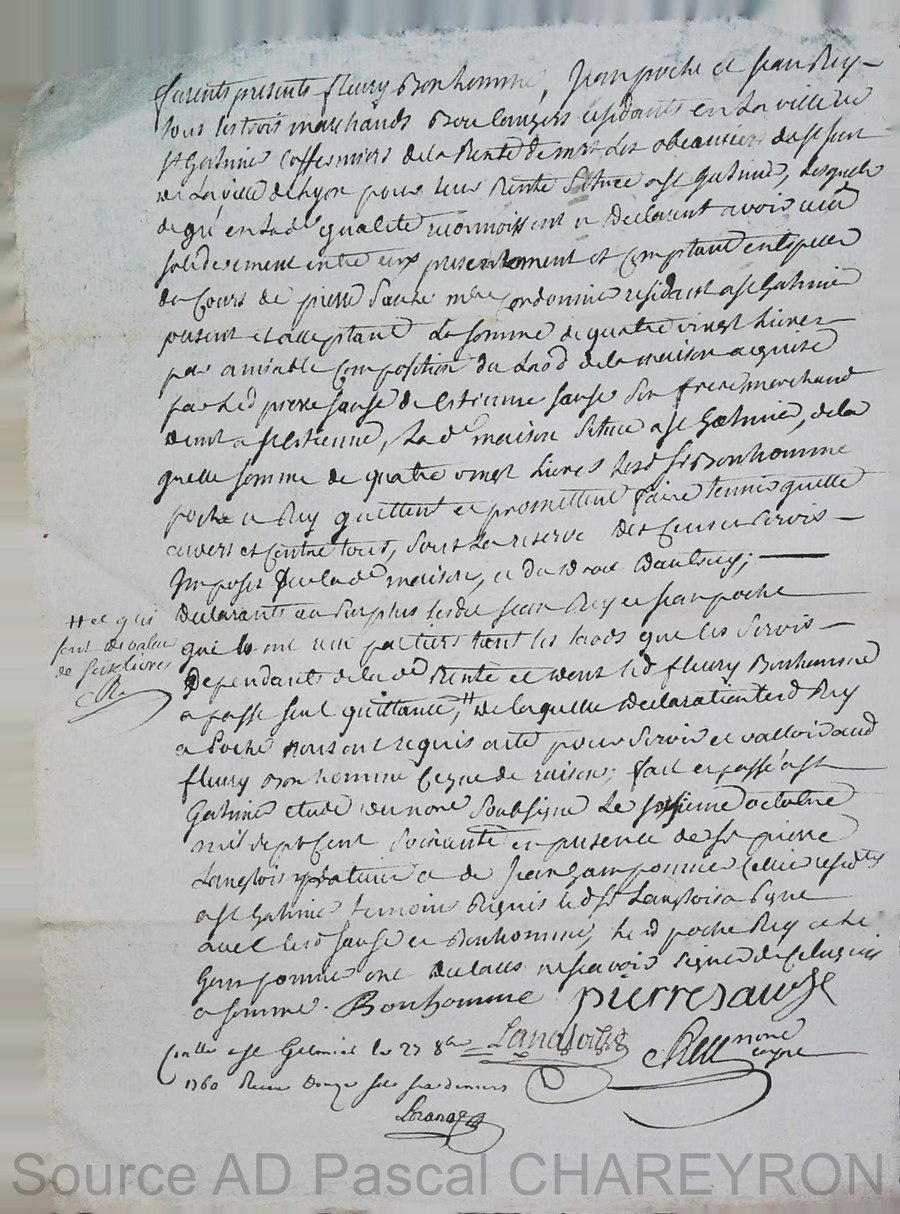 furent presents fleury Bonhomme, Jean poche et Jean Rey
tous les trois marchands Boulangers residants en la ville de
st Galmier cofermiers de la Rente de mrs Les obeanciers de st just
de La ville de Lyon pour leur Rente Situee a st Galmier, lesquels
de gré en lad. qualité reconnoissent et Declarent avoir reçu
solidairement entre eux presentement et comptant en Especes
du Cours de pierre Sauze me Cordonnier residant a st Galmier
present et acceptant La somme de quatre vingt Livres
par amiable Composition du Laod de la maison acquise
par led pierre sauze de Estienne sauze son frere marchand
demt a st Estienne, La de maison Située a st Galmier, de la
quelle somme de quatre vingt Livres lesd srs Bonhomme
poche et Rey quittent et promettent faire tenir quitte
envers et contre tous, sous La reserve Des Cens et Servis
Imposés sur lad maison, et du droit Dautruy;
Declarants au surplus lesdits Jean Rey et Jean poche
qui ont reçu partie tant les laods que les Servis
Dependants de la de Rente et dont led fleury Bonhomme
a passé seul quittance, # de laquelle Declaration lesd Rey
et Poche nous ont requis acte pour servir et valloir aud
fleury Bonhomme Ce que de raison; fait et passé a st
Galmier etude du nore soubsigné Le sixieme octobre
mil sept Cent soixante en presence de sr pierre
Langlois praticien et de Jean Gamponnier residts
a st Galmier temoins Requis led sr Langlois a signé
avec lesd sauze et Bonhomme, lesd poche Rey et le
Gamponnier ont declaré ne scavoir signer de Ce Enquis
et sommé. Bonhomme pierre sauze
Langlois
nore
royal
Conllé a st Galmier le 27 8bre
1760 Reçu Douze sols six deniers
# et qui
sont de valeur
de seize Livres
Source AD Pascal CHAREYRON